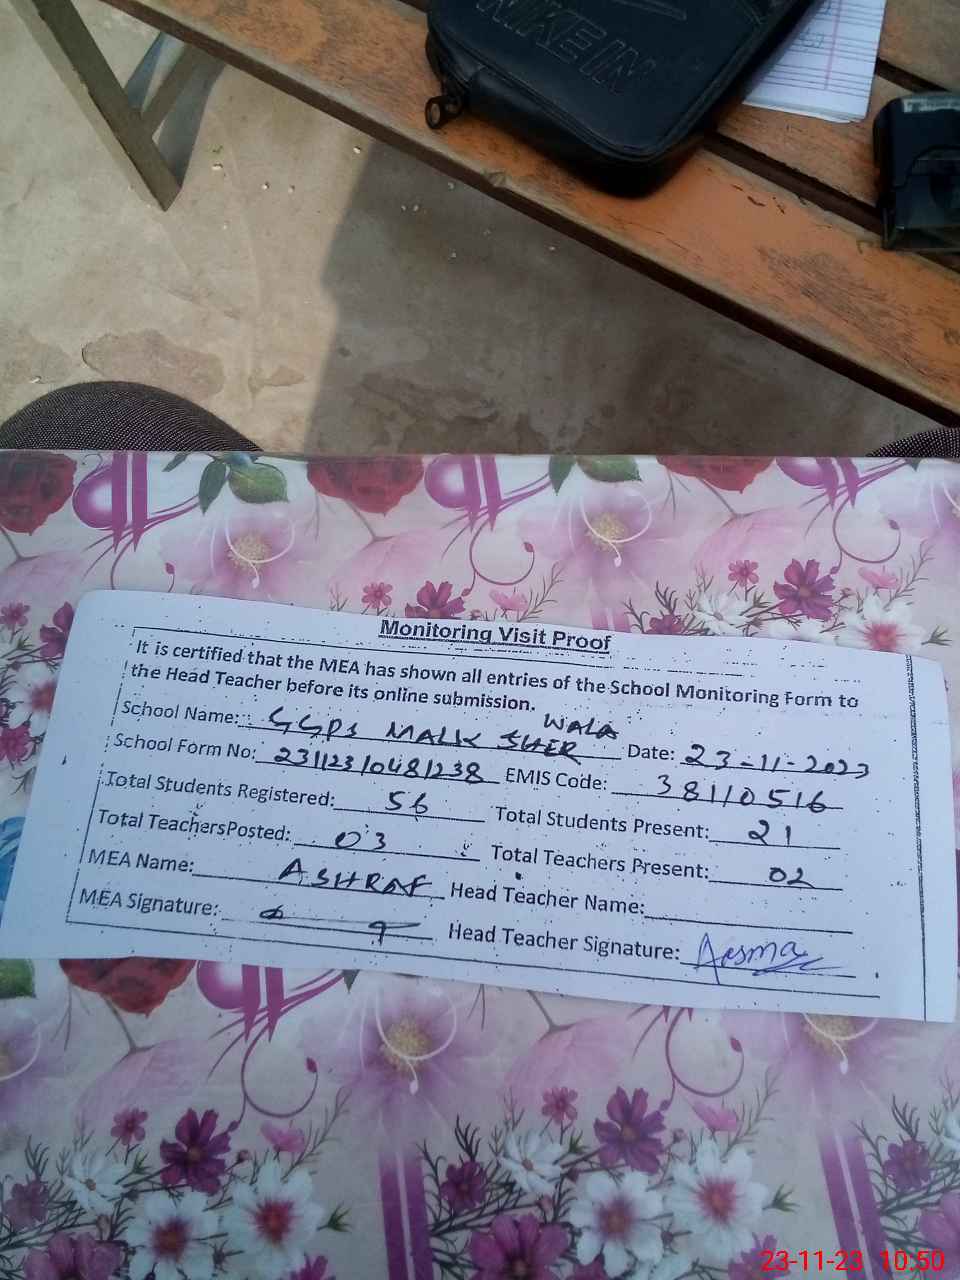 NIKEIN
Monitoring Visit Proof
It is certified that the MEA has shown all entries of the School Monitoring Form to
the Head Teacher before its online submission.
School Name: GGPS MALIK SHER WALA Date: 23-11-2023
School Form No: 23112310481238 EMIS Code: 38110516
Total Students Registered: 56 Total Students Present: 21
Total TeachersPosted: 03 Total Teachers Present: 02
MEA Name: ASHRAF Head Teacher Name:
MEA Signature: Head Teacher Signature: Aesma
23-11-23 10:50